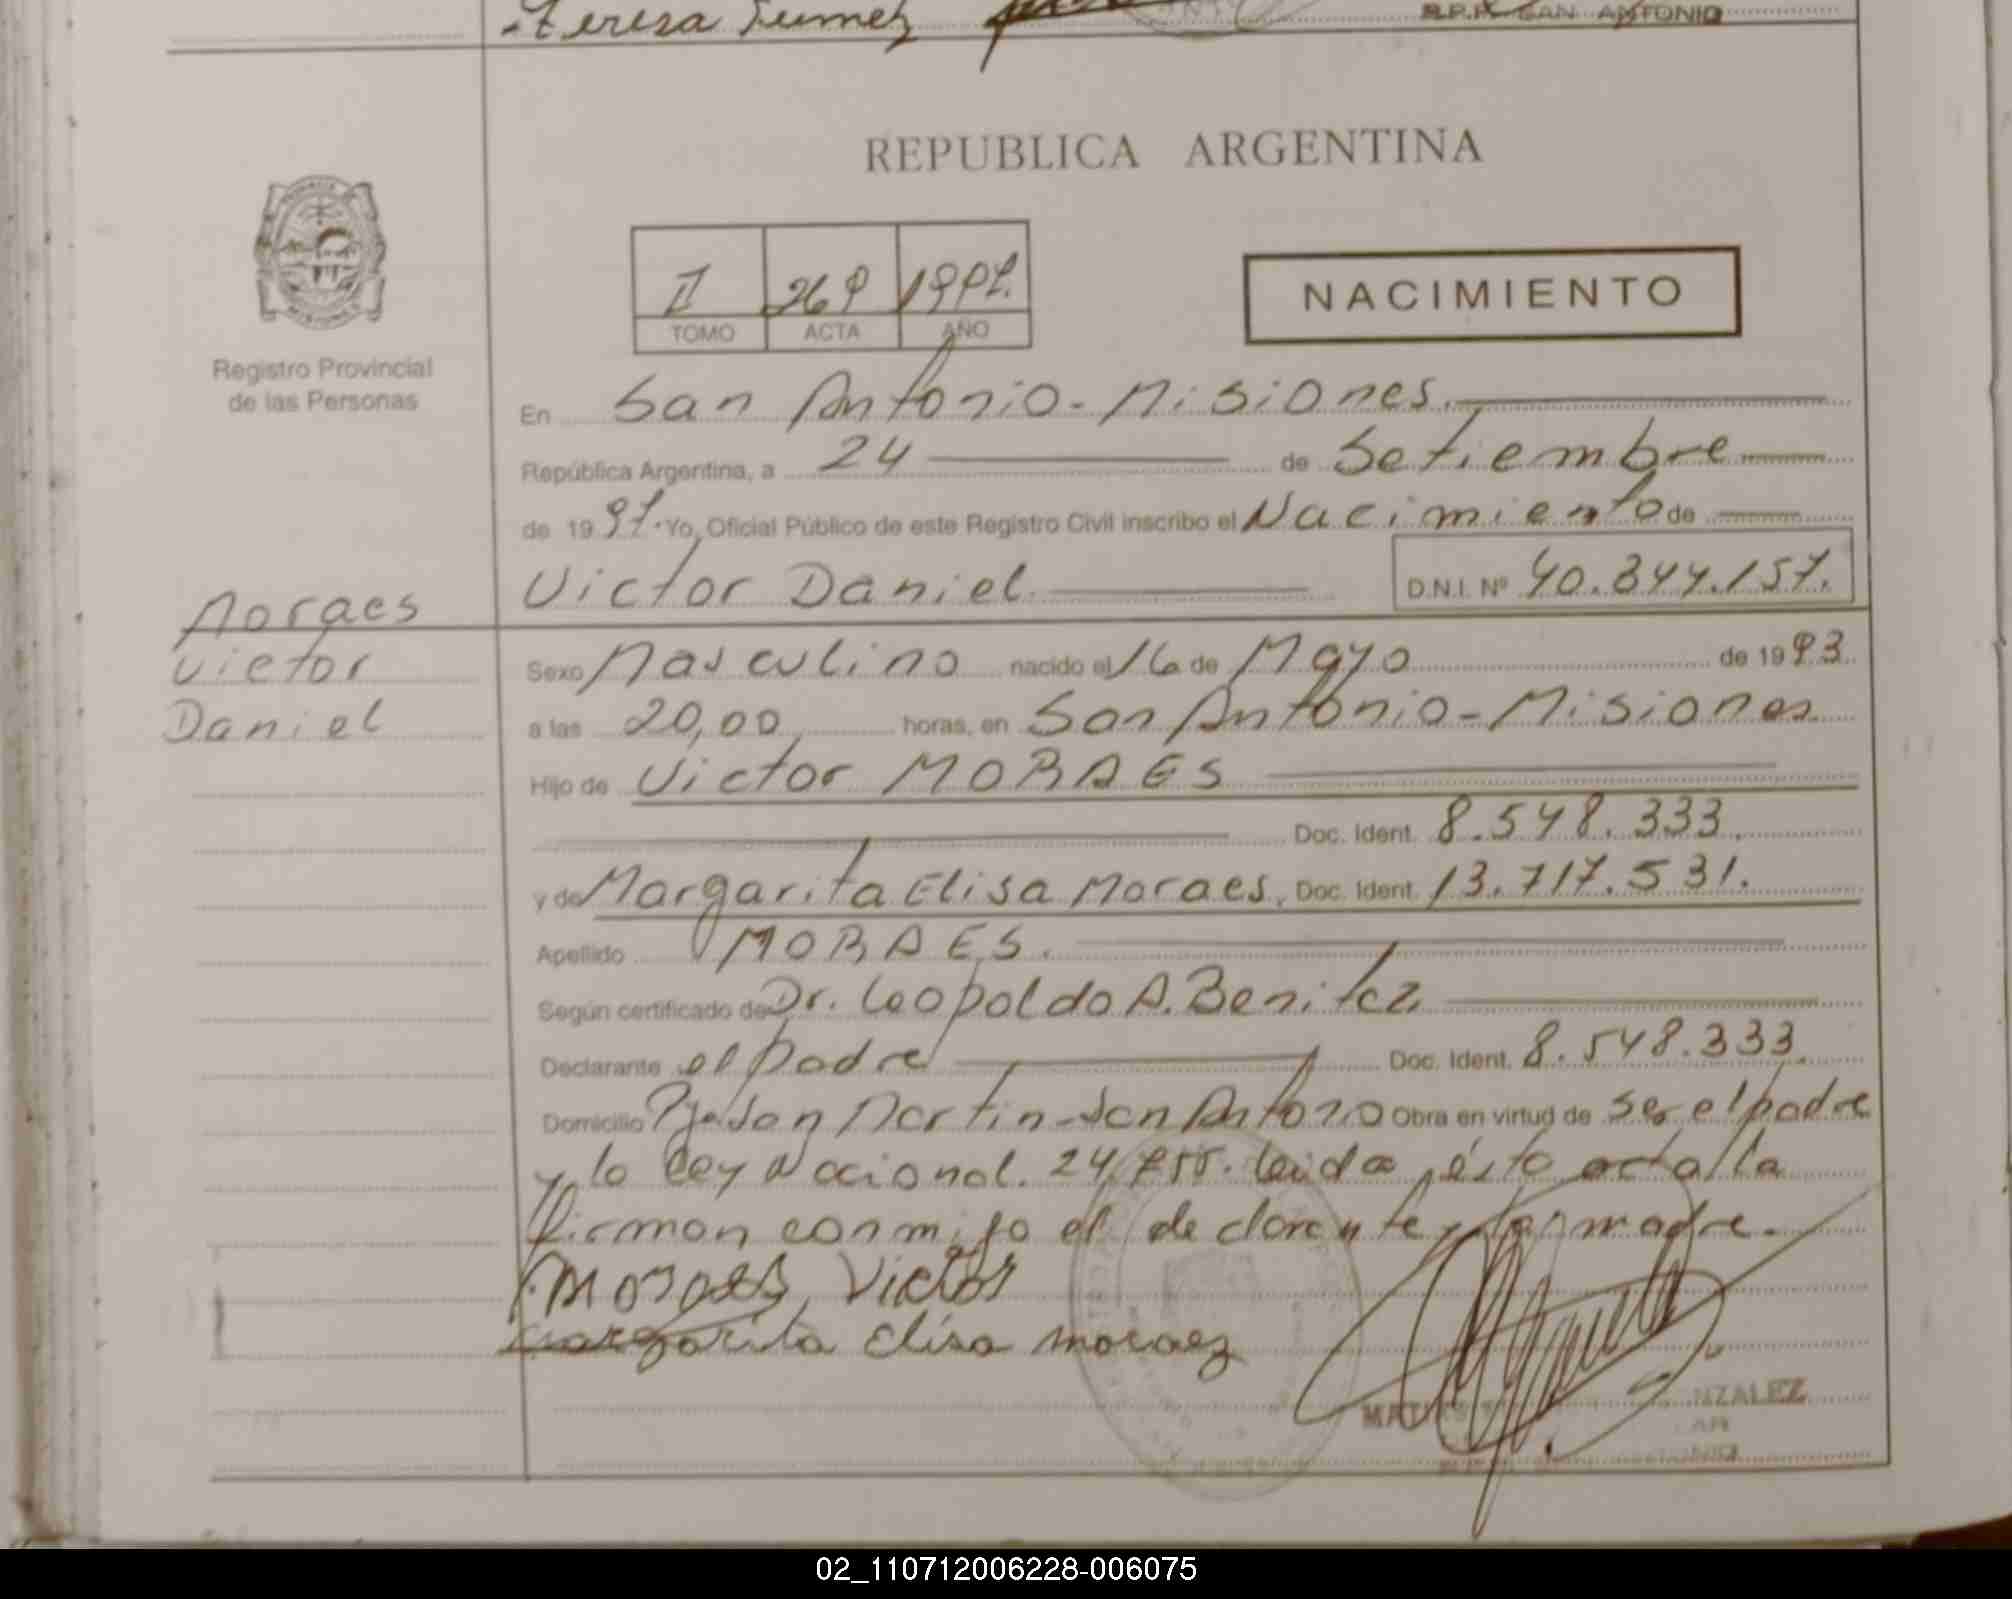 Teresa
R.P.P. SAN ANTONIO
REPUBLICA ARGENTINA
II 269 1997.
TOMO ACTA AÑO
NACIMIENTO
Registro Provincial
de las Personas
En San Antonio - Misiones.
República Argentina, a 24 de Setiembre
de 1997. Yo, Oficial Público de este Registro Civil inscribo el Nacimiento de
Victor Daniel D.N.I. Nº 40.344.157.
Moraes
Victor
Daniel
Sexo Masculino nacido el 16 de Mayo de 1993
a las 20,00 horas, en San Antonio - Misiones
Hijo de Victor MORAES
Doc. Ident. 8.548.333.
y de Margarita Elisa Moraes, Doc. Ident. 13.717.531.
Apellido MORAES.
Según certificado de Dr. Leopoldo A. Benitez
Declarante el padre Doc. Ident. 8.548.333.
Domicilio San Martin - San Antonio Obra en virtud de ser el padre
y la Ley Nacional. 24, leida ésta acta la
firman conmigo el declarante y la madre.
Moraes Victor
Margarita Elisa Moraez
NZALEZ
02_110712006228-006075